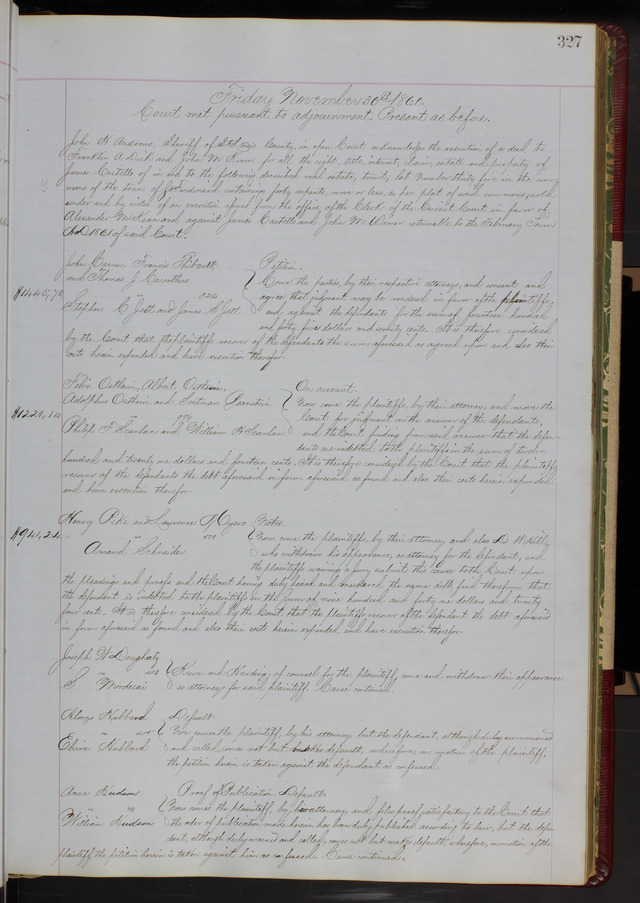 327
Friday November 30th 1860.
Court met pursuant to adjournment. Present as before.
John H Andrews, Sheriff of St Louis County, in open Court acknowledges the execution of a deed to
Franklin A Dick and John M Krum for all the right, title, interest, claim, estate and property of
James Castello of in and to the following described real estate, to wit, lot number thirty five in the com-
mons of the town of containing forty arpents, more or less, as per plat of said commons, sold
under and by virtue of an execution issued from the office of the Clerk of the Circuit Court in favor of
Alexander and against James Castello and John M Wimer returnable to the February Term
AD 1861 of said Court.
John Cavens, Francis Thibault, Petition.
and Thomas J Carruthers Come the parties, by their respective attorneys, and consent and
$1445,70 agree that judgment may be rendered in favor of the plaintiffs,
Stephen C Jett and James S Jett and against the defendants for the sum of fourteen hundred
and forty five dollars and seventy cents. It is therefore considered
by the Court that the plaintiffs recover of the defendants the sum aforesaid as agreed upon and also their
costs herein expended and have execution therefor.
Felix Oatheim, Albert Oatheim, On account.
Adolphus Oatheim and Seatman Bernstein Now come the plaintiffs, by their attorney, and move the
$1221,14 Court for judgment on the answer of the defendants,
Philip F Scanlan and William H Scanlan and the Court finding from said answer that the defen-
dants are indebted to the plaintiffs in the sum of twelve
hundred and twenty one dollars and fourteen cents. It is therefore considered by the Court that the plaintiffs
recover of the defendants the debt aforesaid in form aforesaid as found and also their costs herein expended
and have execution therefor.
Henry Pike and Laurence Myers Notes.
$941,24 Now come the plaintiffs, by their attorney and also D W
Amand Schneider who withdraws his appearance, as attorney for the defendant, and
the plaintiffs waiving a jury submit this cause to the Court upon
the pleadings and proofs and the Court having duly heard and considered the same doth find therefrom that
the defendant is indebted to the plaintiffs in the sum of nine hundred and forty one dollars and twenty
four cents. It is therefore considered by the Court that the plaintiffs recover of the defendant the debt aforesaid
in form aforesaid as found and also their costs herein expended and have execution therefor.
Joseph W Dougherty
vs Krum and Harding, of counsel for the plaintiff, come and withdraw their appearance
S Mordecai as attorneys for said plaintiff. Cause continued.
Alonzo Hubbard Default.
vs Now comes the plaintiff, by his attorney but the defendant, although duly summoned
Elvira Hubbard and called, comes not but makes default, wherefore, on motion of the plaintiff,
the petition herein is taken against the defendant as confessed.
Anne Hudson Proof of Publication Default.
vs Now comes the plaintiff by her attorney, and files proof satisfactory to the Court that
William Hudson the order of publication made herein has been duly published according to law, but the defen-
dant, although duly warned and called, comes not but makes default, wherefore, on motion of the
plaintiff, the petition herein is taken against him as confessed. Cause continued.